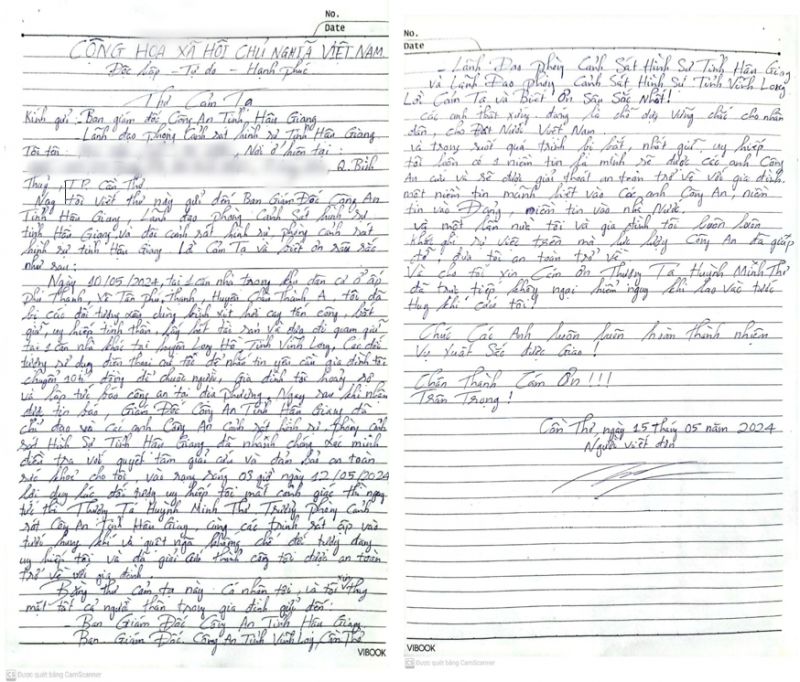 No.
Date
CỘNG HÒA XÃ HỘI CHỦ NGHĨA VIỆT NAM
Độc lập - Tự do - Hạnh phúc
Thư Cảm Tạ
Kính gửi: Ban giám đốc Công An Tỉnh Hậu Giang
- Lãnh đạo phòng Cảnh sát hình sự Tỉnh Hậu Giang
Tôi tên: , Nơi ở hiện tại:
Q. Bình
Thuỷ, TP. Cần Thơ
Nay tôi viết thư này gửi đến Ban Giám Đốc Công An
Tỉnh Hậu Giang, Lãnh đạo phòng Cảnh Sát hình sự
tỉnh Hậu Giang và đội cảnh sát hình sự phòng cảnh sát
hình sự tỉnh Hậu Giang. Cảm Tạ và biết ơn sâu sắc
như sau:
Ngày 10/05/2024, tại 1 căn nhà trong khu dân cư ở ấp
Phú Thạnh, Xã Tân Phú Thạnh, Huyện Châu Thành A, tôi đã
bị các đối tượng xấu dùng bình xịt hơi cay tấn công, bắt
giữ, uy hiếp tinh thần, lấy hết tài sản và đưa đi giam giữ
tại 1 căn nhà khác tại huyện Long Hồ Tỉnh Vĩnh Long. Các đối
tượng sử dụng điện thoại của tôi để nhắn tin yêu cầu gia đình tôi
chuyển 10 tỉ đồng để chuộc người, Gia đình tôi hoảng sợ
và lập tức báo công an tại địa phương. Ngay sau khi nhận
được tin báo, Giám Đốc Công An Tỉnh Hậu Giang đã
chỉ đạo và các anh Công An Cảnh sát hình sự, Phòng cảnh
sát Hình Sự Tỉnh Hậu Giang đã nhanh chóng xác minh
điều tra với quyết tâm giải cứu và đảm bảo an toàn
sức khoẻ cho tôi vào rạng sáng 03 giờ ngày 12/05/2024
lợi dụng lúc đối tượng uy hiếp tôi mất cảnh giác thì ngay
tức thì Thượng Tá Huỳnh Minh Thư Trưởng phòng Cảnh
sát Công An Tỉnh Hậu Giang, cùng các trinh sát ập vào
tước hung khí và quật ngã khống chế đối tượng đang
uy hiếp tôi và đã giải cứu thành công tôi được an toàn
trở về với gia đình.
Bằng thư cảm tạ này: Cá nhân tôi, và tôi xin thay
mặt tất cả người thân trong gia đình gửi đến:
- Ban Giám Đốc Công An Tỉnh Hậu Giang
Ban Giám Đốc Công An Tỉnh Vĩnh Long, Cần Thơ
VIBOOK
CS Được quét bằng CamScanner
No.
Date
- Lãnh Đạo Phòng Cảnh Sát Hình Sự Tỉnh Hậu Giang
và Lãnh Đạo Phòng Cảnh Sát Hình Sự Tỉnh Vĩnh Long
Lời Cảm Tạ và Biết Ơn Sâu Sắc Nhất!
Các anh thật xứng đáng là chỗ dựa vững chắc cho nhân
dân, cho Đất Nước Việt Nam
và trong suốt quá trình bị bắt, nhốt giữ, uy hiếp
tôi luôn có 1 niềm tin là mình sẽ được các anh Công
An cứu và sẽ được giải thoát an toàn trở về với gia đình.
một niềm tin mãnh liệt vào các anh Công An, niềm
tin vào Đảng, niềm tin vào nhà Nước.
và một lần nữa tôi và gia đình tôi luôn luôn
khắc ghi sự việc trên mà lực lượng Công An đã giúp
đỡ, đưa tôi an toàn trở về.
Và cho tôi xin Cám ơn Thượng Tá Huỳnh Minh Thư
đã trực tiếp không ngại hiểm nguy khi lao vào tước
Hung khí cứu tôi!
Chúc Các Anh luôn luôn hoàn thành nhiệm
Vụ Xuất Sắc được Giao!
Chân Thành Cám Ơn!!!
Trân Trọng!
Cần Thơ, ngày 15 tháng 05 năm 2024
Người viết đơn
VIBOOK
CS Được quét bằng CamScanner